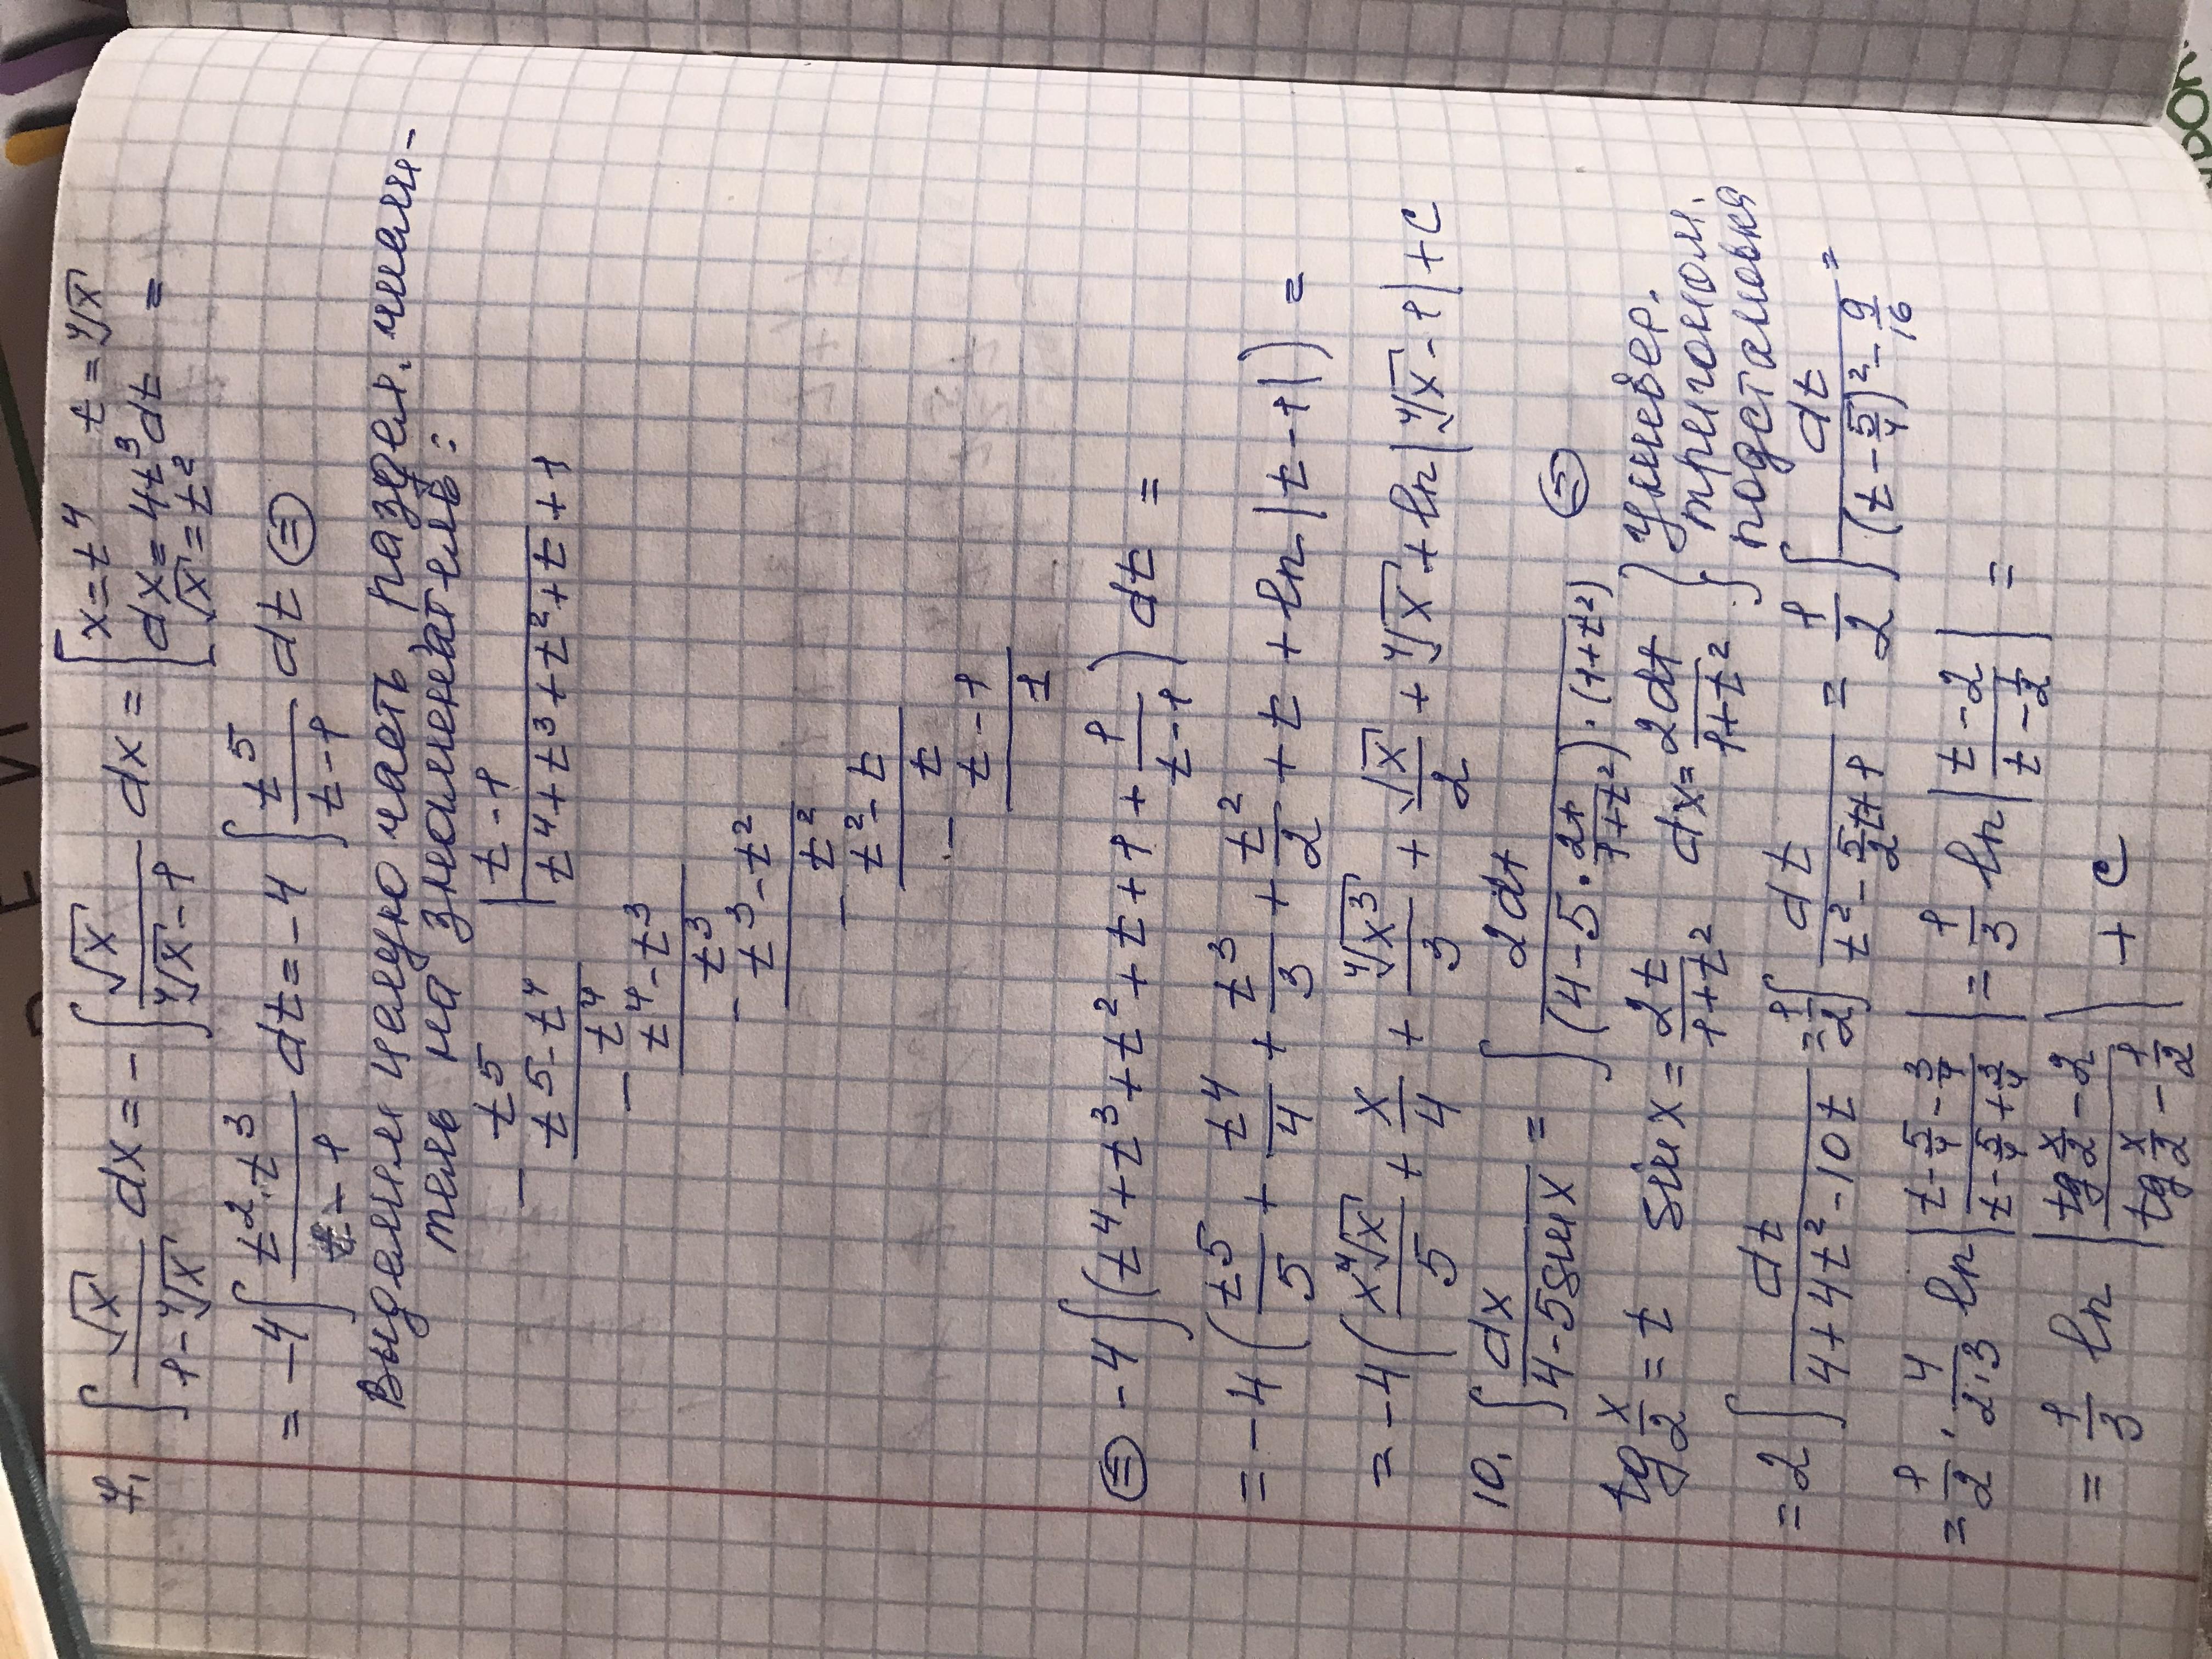 7. ∫ √x / (1-⁴√x) dx = - ∫ √x / (⁴√x-1) dx = [ x=t⁴ t=⁴√x
dx=4t³dt
√x=t² ] =
= -4 ∫ t²·t³ / (t-1) dt = -4 ∫ t⁵ / (t-1) dt ⊜
Выделим целую часть раздел. числи-
тель на знаменатель:
- t⁵ | t-1
t⁵-t⁴ | t⁴+t³+t²+t+1
- t⁴
t⁴-t³
- t³
t³-t²
- t²
t²-t
- t
t-1
1
⊜ -4 ∫ (t⁴+t³+t²+t+1+ 1/(t-1)) dt =
= -4 ( t⁵/5 + t⁴/4 + t³/3 + t²/2 + t + ln|t-1| ) =
= -4 ( x⁴√x/5 + x/4 + ⁴√x³/3 + √x/2 + ⁴√x + ln|⁴√x-1| + C
10. ∫ dx / (4-5sinx) = ∫ 2dt / ((4-5· 2t/(1+t²))·(1+t²)) ⊜
tg x/2 = t sinx = 2t/(1+t²) dx = 2dt/(1+t²) } Универ.
тригоном.
подстановка
= 2 ∫ dt / (4+4t²-10t) = 1/2 ∫ dt / (t²- 5/2 t+1) = 1/2 ∫ dt / ((t- 5/4)² - 9/16) =
= 1/2 · 4/(2·3) ln | (t- 5/4 - 3/4) / (t- 5/4 + 3/4) | = 1/3 ln | (t-2) / (t- 1/2) | =
= 1/3 ln | (tg x/2 - 2) / (tg x/2 - 1/2) | + C